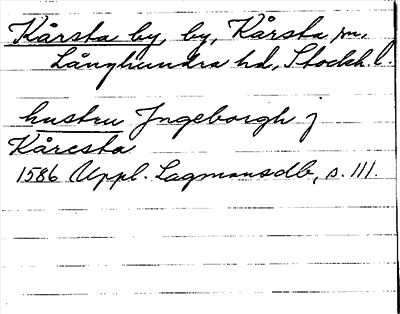 Kårsta by, by, Kårsta sn,
Långhundra hd, Stockh. l.
hustru Jngeborgh j
Kåresta
1586 Uppl. Lagmansdb, s. 111.